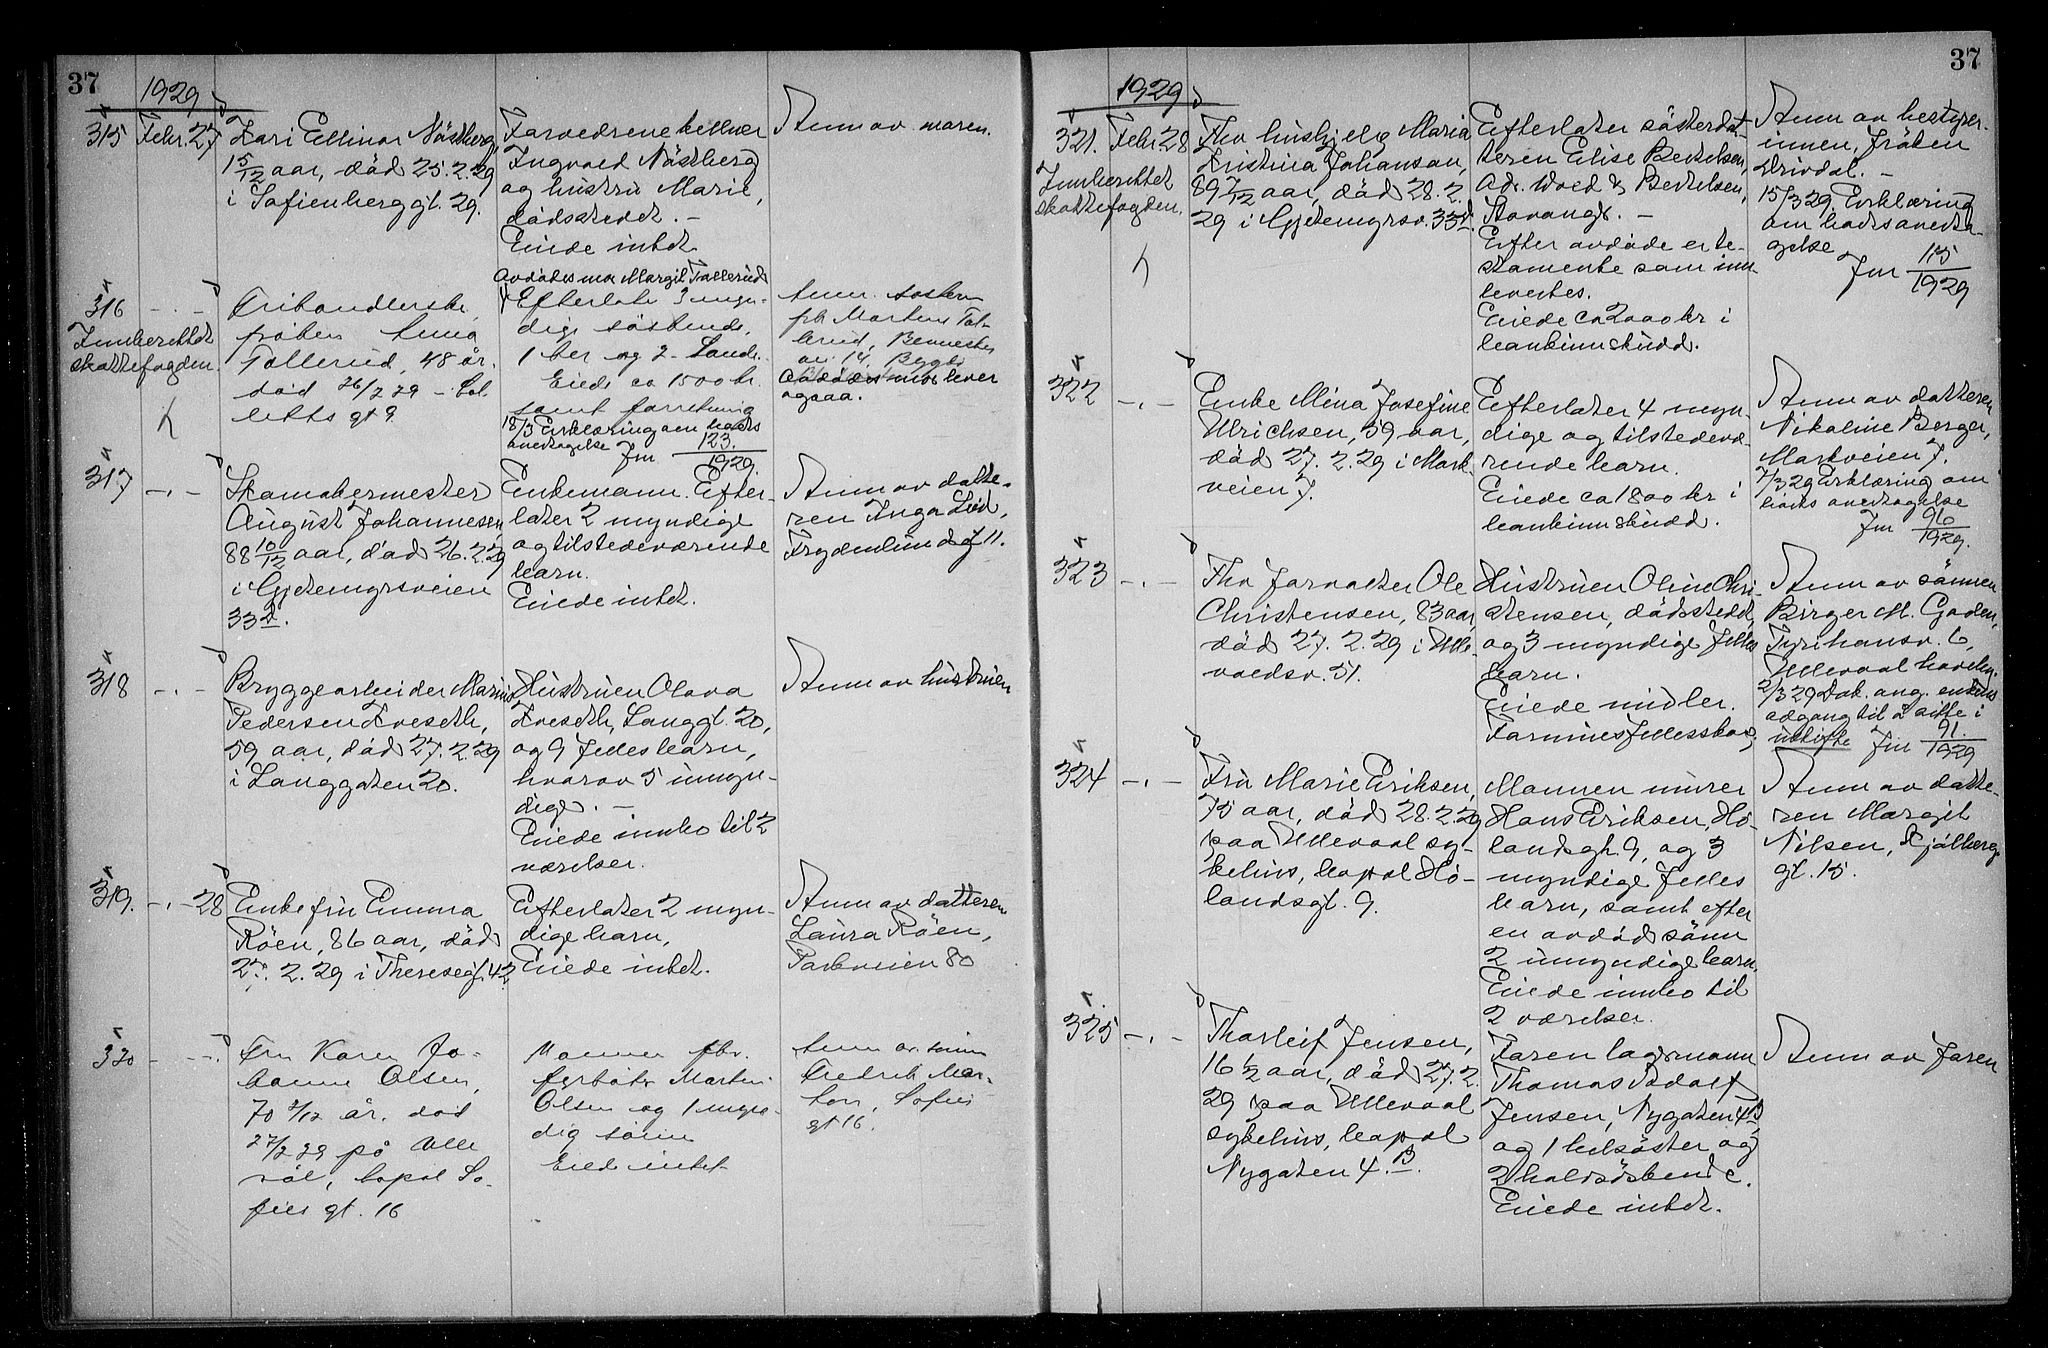 37
1929
315 Febr. 27 Kari Ellinor Nöstberg,
5/12 aar, död 25.2.29
i Sofienberggt. 29.
Forældrene kelner
Ingvald Nöstberg
og hustru Marie,
dödsstedet. –
Eiede intet.
Anm av moren.
316 – . –
Innberettet
skattefogden.
fröken Anna
Tollerud, 48 år.
död 26/2 29 –
gt 9
Avdödes mor Margit Tollerud
Efterlater 3 myn-
dige söskende,
1 her og 2
Eiede ca 1500 kr.
samt forretning
18/3 Erklæring om bobs
overtagelse Jnr 123./1929.
Anm. söster
frk Martine Tol-
lerud,
14, Bygdö
Avdödes mor lever
ogsaa.
317 – . –
Skomakermester
August Johannesen,
88 10/12 aar, död 26.2.29
i Gjetemyrsveien
33d.
Enkemann. Efter-
later 2 myndige
og tilstedeværende
barn.
Eiede intet.
Anm av datte-
ren Inga Lid,
Frydenlundgt 11.
318 – . –
Bryggearbeider Marius
Pedersen Freseth,
59 aar, död 27.2.29
i Langgaten 20.
Hustruen Olava
Freseth, Langgt. 20,
og 9 fellesbarn,
hvorav 5 umyn-
dige. –
Eiede innbo til 2
værelser.
Anm av hustruen
319. – . – 28
Enkefru Emma
Röen, 86 aar, död
27.2.29 i Theresegt. 42
Efterlater 2 myn-
dige barn,
Eiede intet.
Anm av datteren
Laura Röen,
Parkveien 80
320 – . –
Fru Karen Jo-
hanne Olsen,
70 2/12 år. död
27/2 29 på Ulle
vål, bopel So-
fies gt. 16
Mannen fhv.
Martin
Olsen og 1 myn-
dig sönn
Eiede intet
Anm av sönn
Fredrik Mar-
, Sofies
gt 16.
37
1929
321. Febr 28
Innberettet
skattefogden.
Fhv hushjelp Maria
Kristina Johanson,
89 7/12 aar, död 28.2.
29 i Gjetemyrsv. 33d.
Efterlater sösterdat-
teren Elise Bertelsen,
adr. Wold & Bertelsen,
Stavanger. –
Efter avdöde er te-
stamente som inn-
levertes.
Eiede ca 2000 kr i
bankinnskudd.
Anm av bestyrer-
innen, fröken
Drivdal. –
15/3 29 Erklæring
om bobs overta-
gelse
Jnr 115/1929
322 – . –
Enke Mina Josefine
Ulrichsen, 59 aar,
död 27.2.29 i Mark-
veien 7.
Efterlater 4 myn-
dige og tilstedevæ-
rende barn.
Eiede ca 1800 kr i
bankinnskudd.
Anm av datteren
Nikoline Berger,
Markveien 7.
7/3 29 Erklæring om
bobs overtagelse
Jnr 96/1929.
323 – . –
Fhv forvalter Ole
Christensen, 83 aar,
död 27.2.29 i Ulle-
voldsv. 51.
Hustruen Oline Chri-
stensen, dödsstedet,
og 3 myndige felles
barn.
Eiede midler.
Formuesfellesskap.
Anm av sönnen
Birger M. Goden,
Tyrihansv. 6,
Ullevaal haveby.
2/3 29 Dok. ang. enkens
adgang til å sitte i
uskifte Jnr 91./1929
324 – . –
Fru Marie Eriksen,
75 aar, död 28.2.29
paa Ullevaal sy-
kehus, bopel Hö-
landsgt. 9.
Mannen murer
Hans Eriksen, Hö-
landsgt. 9, og 3
myndige felles
barn, samt efter
en avdöd sönn
2 umyndige barn.
Eiede innbo til
2 værelser.
Anm av datte-
ren Margit
Nilsen, Kjölberg-
gt. 15.
325 – . –
Thorleif Jensen,
16 1/2 aar, död 27.2.
29 paa Ullevaal
sykehus, bopel
Nygaten 4.B.
Faren lagermann
Thomas Adolf
Jensen, Nygaten 4B,
og 1 helsöster og
2 halvsöskende.
Eiede intet.
Anm av faren